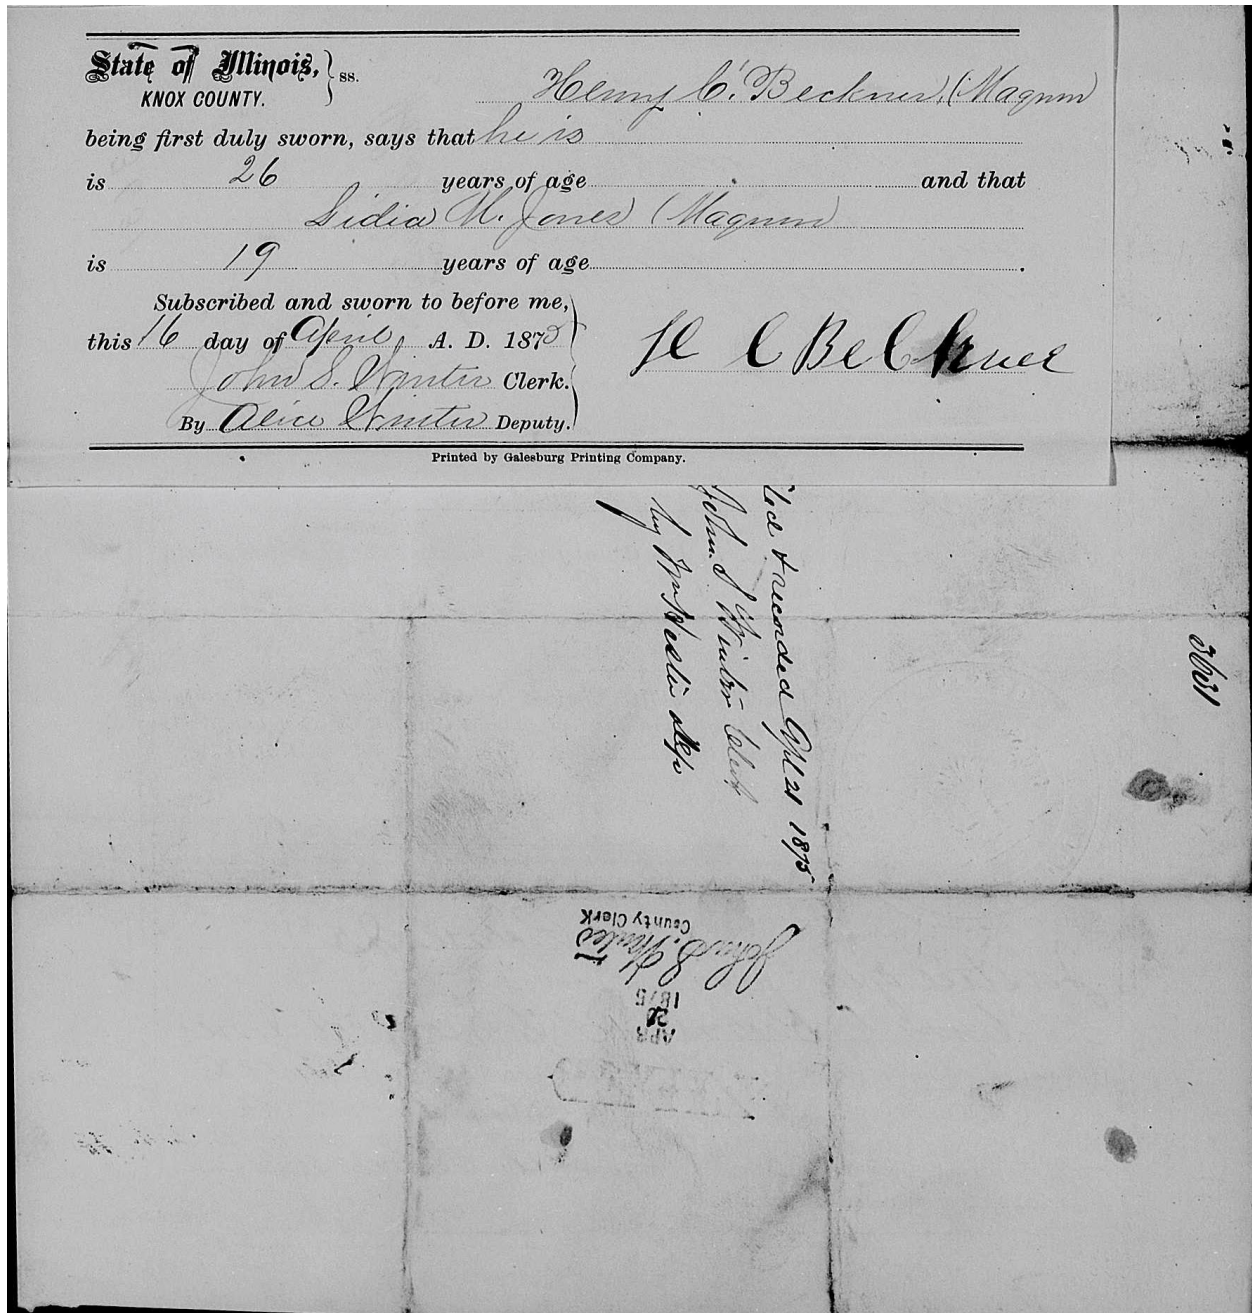 State of Illinois, } ss.
KNOX COUNTY.
Henry C. Beckner, (Maqnon
being first duly sworn, says that he is
is 26 years of age and that
Lidia M. Jones (Maqnon
is 19 years of age .
Subscribed and sworn to before me,
this 16 day of April A. D. 1875
John S. Winter Clerk.
By Alice Winter Deputy.
H C BeCkner
Printed by Galesburg Printing Company.
iled & recorded Apl 21 1875
John S Winter Clerk
by Dep
3631
John S. Winter
County Clerk
APR
21
1875